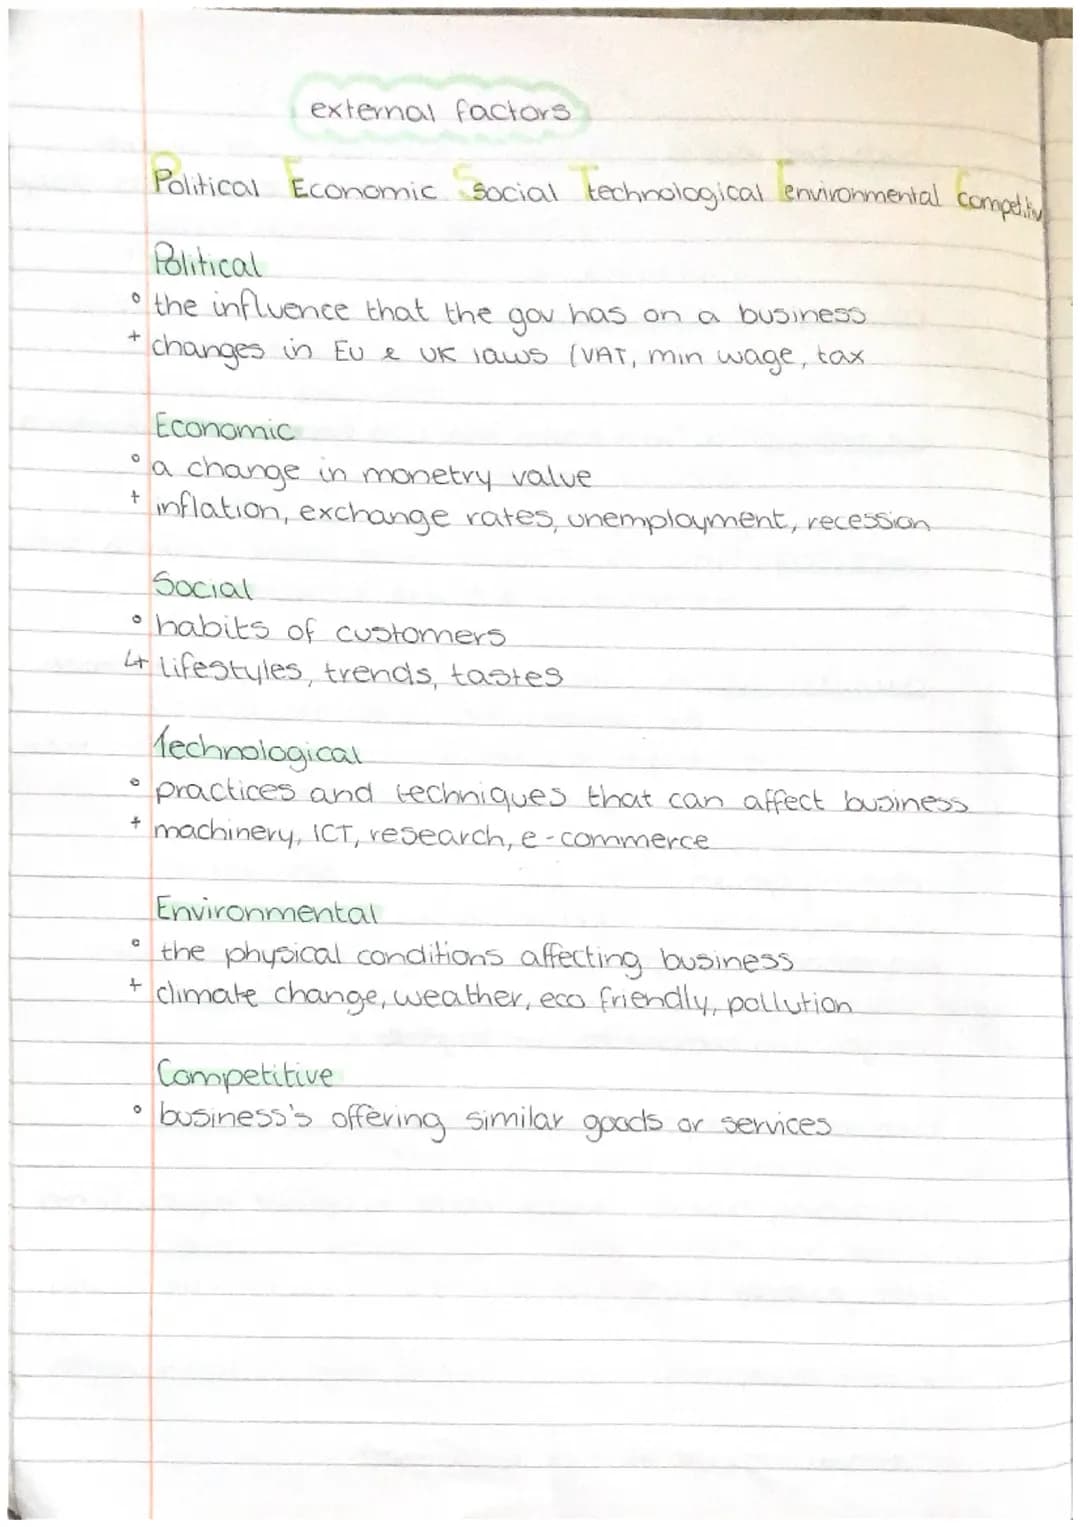 external factors
Political Economic Social technological environmental Competitiv
Political
° the influence that the gov has on a business
+ changes in EU & UK laws (VAT, min wage, tax
Economic
° a change in monetry value
+ inflation, exchange rates, unemployment, recession
Social
° habits of customers
↳+ lifestyles, trends, tastes
Technological
° practices and techniques that can affect business
+ machinery, ICT, research, e-commerce
Environmental
° the physical conditions affecting business
+ climate change, weather, eco friendly, pollution
Competitive
° business's offering similar goods or services